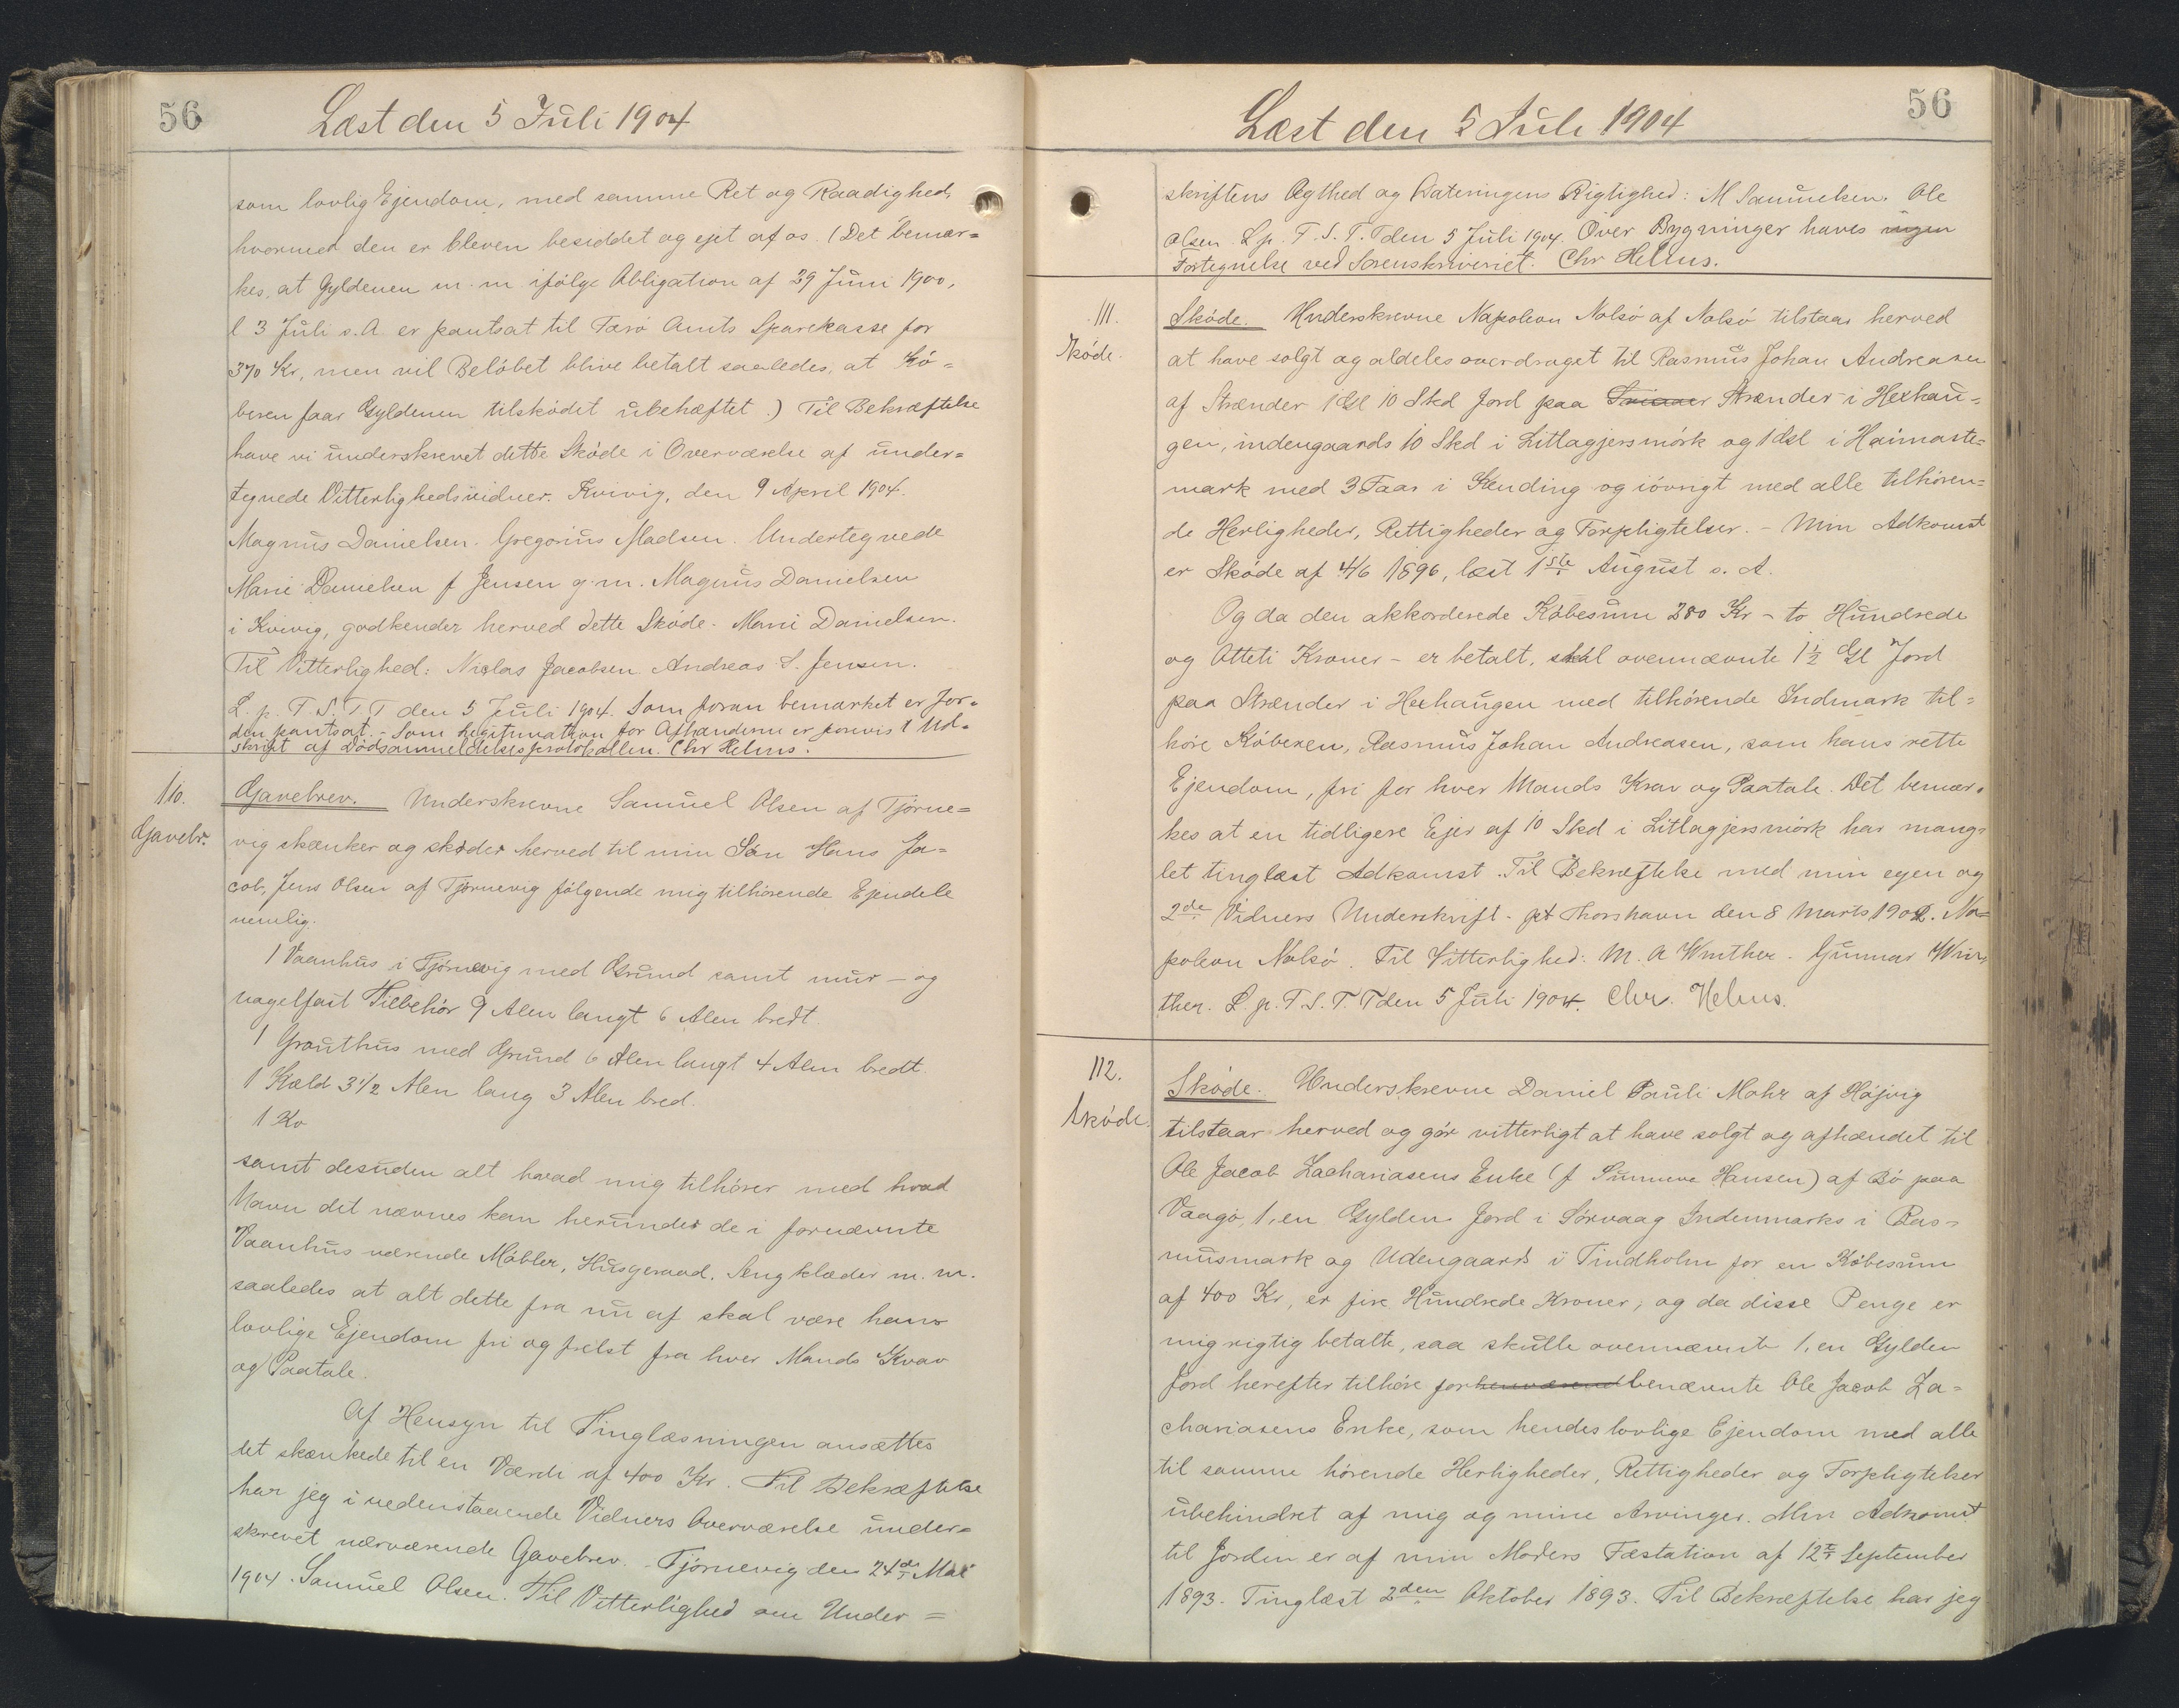 56
Læst den 5 Juli 1904
som lovlig Ejendom, med samme Ret og Raadighed,
hvormed den er bleven besiddet og ejet af os. (Det bemær=
kes, at Gyldenen m. m. ifølge Obligation af 29 Juni 1900,
l 3 Juli s. A. er pantsat til Færø Amts Sparekasse for
370 Kr, men vil Beløbet blive betalt saaledes, at Kø=
beren faar Gyldenen tilskødet ubehæftet.) Til Bekræftelse
have vi underskrevet dette Skøde i Overværelse af under=
tegnede Vitterlighedsvidner. Kvivig, den 9 April 1904.
Magnus Danielsen. Gregorius Madsen. Undertegnede
Marie Danielsen f Jensen g. m. Magnus Danielsen
i Kvivig, godkender herved dette Skøde. Marie Danielsen.
Til Vitterlighed: Niclas Jacobsen Andreas S. Jensen.
L. p. F. S. T. T den 5 Juli 1904. Som foran bemærket er Jor=
den pantsat. - Som Legitimation for Afhænderne er forevist Ud=
skrift af Dødsanmeldelsesprotokollen. Chr Helms.
110.
Gavebr.
Gavebrev. Underskrevne Samuel Olsen af Tjørne=
vig skænker og skøder herved til min Søn Hans Ja=
cob, Jens Olsen af Tjørnevig følgende mig tilhørende Ejendele
nemlig.
1 Vaanhus i Tjørnevig med Grund samt mur- og
nagelfast Tilbehør 9 Alen langt 6 Alen bredt.
1 Grouthus med Grund 6 Alen langt 4 Alen bredt.
1 Kæld 3 1/2 Alen lang 3 Alen bred.
1 Ko
samt desuden alt hvad mig tilhører med hvad
Navn det nævnes kan herunder de i fornævnte
Vaanhus værende Møbler, Husgeraad, Sengklæder m. m.
saaledes at alt dette fra nu af skal være hans
lovlige Ejendom fri og frelst fra hver Mands Krav
og Paatale.
Af Hensyn til Tinglæsningen ansættes
det skænkede til en Værdi af 400 Kr. Til Bekræftelse
har jeg i nedenstaaende Vidners Overværelse under=
skrevet nærværende Gavebrev. - Tjørnevig den 24de Mai
1904. Samuel Olsen. Til Vitterlighed om Under=
56
Læst den 5 Juli 1904
skriftens Ægthed og Dateringens Rigtighed: M Samuelsen. Ole
Olsen. L p. F. S. T. T den 5 Juli 1904. Over Bygninger haves ingen
Fortegnelse ved Sorenskriveriet. Chr Helms.
111.
Skøde.
Skøde. Underskrevne Napoleon Nolsø af Nolsø tilstaar herved
at have solgt og aldeles overdraget til Rasmus Johan Andreasen
af Strænder 1 Gl 10 Skd Jord paa Strænder i Hexhau=
gen, indengaards 10 Skd i Litlagjersmørk og 1 Gl i Haimaste=
mark med 3 Faar i Kending og iøvrigt med alle tilhøren=
de Herligheder, Rettigheder og Forpligtelser. - Min Adkomst
er Skøde af 4/6 1896, læst 1ste August s. A.
Og da den akkorderede Købesum 280 Kr - to Hundrede
og Otteti Kroner - er betalt, skal ovennævnte 1 1/2 Gl Jord
paa Strænder i Hexhaugen med tilhørende Indmark til=
høre Køberen, Rasmus Johan Andreasen, som hans rette
Ejendom, fri for hver Mands Krav og Paatale. Det bemær=
kes at en tidligere Ejer af 10 Skd i Litlagjersmørk har mang=
let tinglæst Adkomst. Til Bekræftelse med min egen og
2de Vidners Underskrift. pt Thorshavn den 8 Marts 1902. Na=
poleon Nolsø. Til Vitterlighed: M. A Winther. Gunnar Win=
ther. L. p. F S. T. T den 5 Juli 1904. Chr. Helms.
112.
Skøde.
Skøde. Underskrevne Daniel Pauli Mohr af Højvig
tilstaar herved og gør vitterligt at have solgt og afhændet til
Ole Jacob Zachariasens Enke (f Sunneve Hansen) af Bø paa
Vaagø, 1, en Gylden Jord i Sørvaag Indenmarks i Ras=
musmark og Udengaards i Tindholm for en Købesum
af 400 Kr, er fire Hundrede Kroner, og da disse Penge er
mig rigtig betalte, saa skulle ovennævnte 1, en Gylden
Jord herefter tilhøre forbenævnte Ole Jacob Za=
chariasens Enke, som hendes lovlige Ejendom med alle
til samme hørende Herligheder, Rettigheder og Forpligtelser
ubehindret af mig og mine Arvinger. Min Adkomst
til Jorden er af min Moders Fæstation af 12te September
1893. Tinglæst 2den Oktober 1893. Til Bekræftelse har jeg